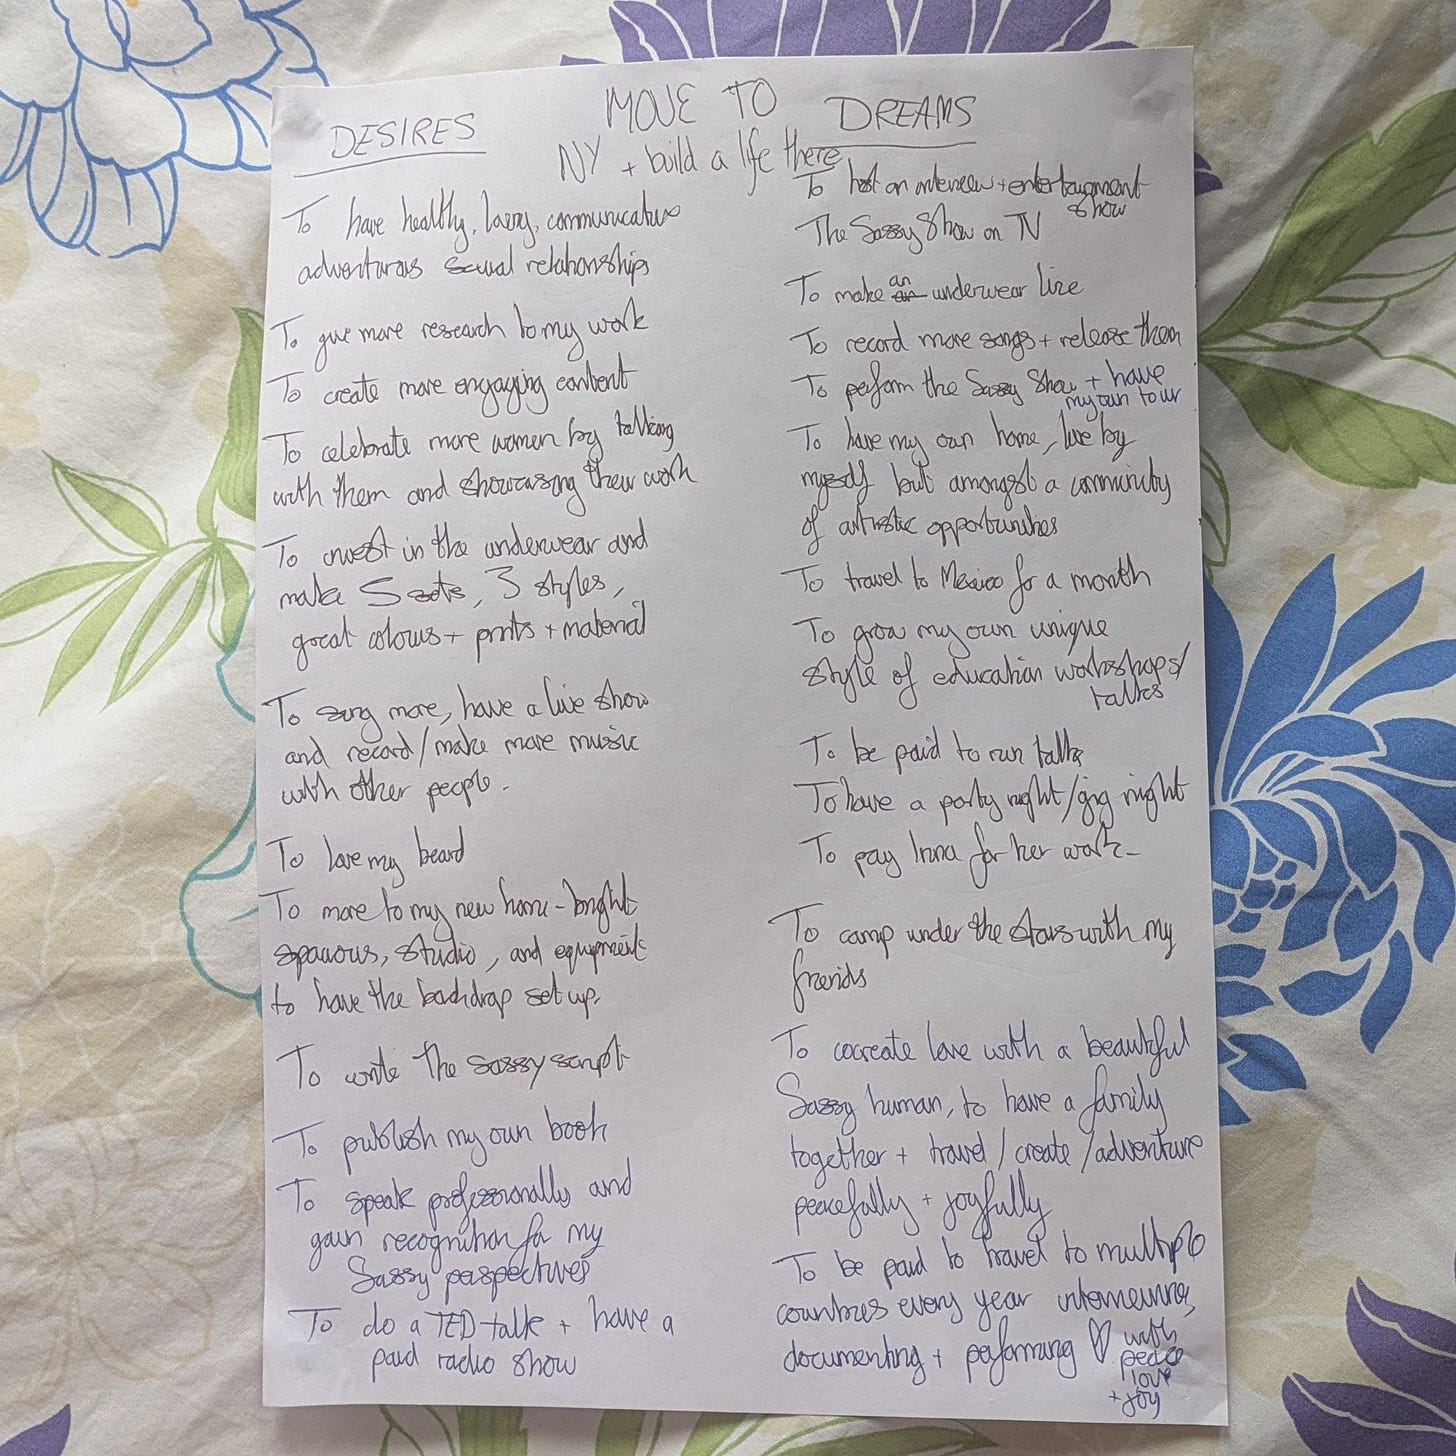 MOVE TO
NY + build a life there
DESIRES
To have healthy, loving, communicative
adventurous sexual relationships
To give more research to my work
To create more engaging content
To celebrate more women by talking
with them and showcasing their work
To invest in the underwear and
make 5 sets, 3 styles,
great colours + prints + material
To sing more, have a live show
and record/make more music
with other people.
To love my beard
To move to my new home - bright
spacious, studio, and equipment
to have the backdrop set up.
To write the sassy script
To publish my own book
To speak professionally and
gain recognition for my
Sassy perspectives
To do a TED talk + have a
paid radio show
DREAMS
To host an interview + entertaignment
show
The Sassy Show on TV
To make an underwear line
To record more songs + release them
To perform the Sassy Show + have
my own tour
To have my own home, live by
myself but amongst a community
of artistic opportunities
To travel to Mexico for a month
To grow my own unique
style of education workshops/
talks
To be paid to run talks
To have a party night/gig night
To pay Inna for her work-
To camp under the stars with my
friends
To cocreate love with a beautiful
Sassy human, to have a family
together + travel / create / adventure
peacefully + joyfully
To be paid to travel to multiple
countries every year interviewing,
documenting + performing ♡ with
peace
love
+ joy